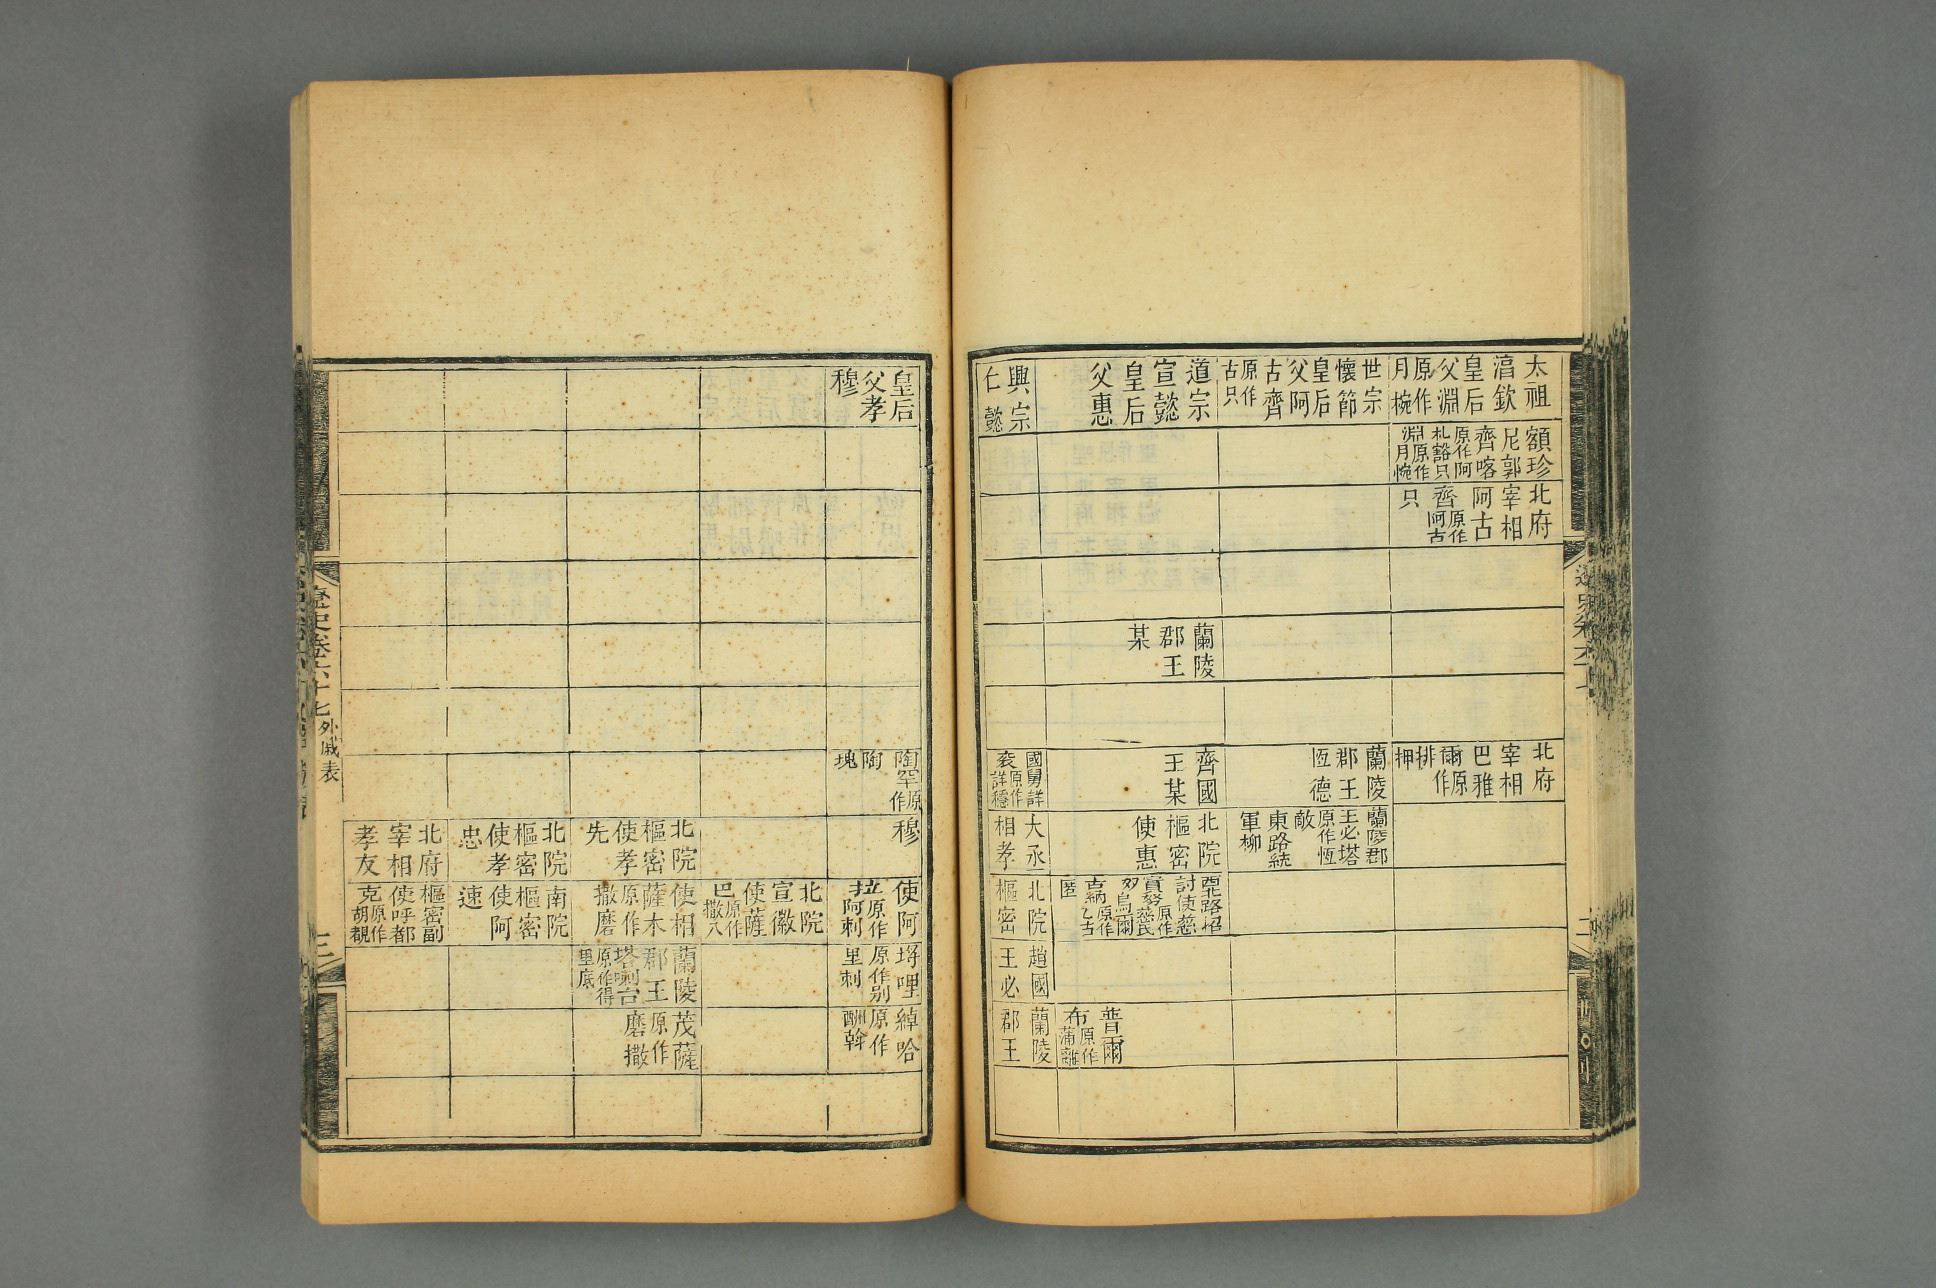 太祖
淯欽
皇后
父淵
原作
月椀
世宗
懷節
皇后
父阿
古齊
原作
古只
道宗
宣懿
皇后
父惠
興宗
仁懿
額珍
尼郭
齊喀
原作阿
札豁只
淵原作
月椀
北府
宰相
阿古
齊原作
阿古
只
蘭陵
郡王
某
北府
宰相
巴雅
爾原
作
排
押
蘭陵
郡王
恆德
齊國
王某
國舅詳
袞原作
詳穩
蘭陵郡
王必塔
原作恆
敵
東路統
軍柳
北院
樞密
使惠
大丞
相孝
西北路招
討使慈
賓努原作
慈氏
奴烏爾
古納原作
乙古
匿
北院
樞密
趙國
王必
普爾
布原作
蒲離
蘭陵
郡王
遼史卷六十七
二
皇后
父孝
穆
陶罕原
作
陶
瑰
穆
北院
樞密
使孝
先
北院
樞密
使孝
忠
北府
宰相
孝友
使阿
拉原作
阿剌
北院
宣徽
使薩
巴原作
撒八
使相
薩木
原作
撒磨
南院
樞密
使阿
速
樞密副
使呼都
克原作
胡覩
埒哩
原作别
里剌
蘭陵
郡王
塔喇台
原作得
里底
綽哈
原作
酬斡
茂薩
原作
磨撒
遼史卷六十七
外戚表
三